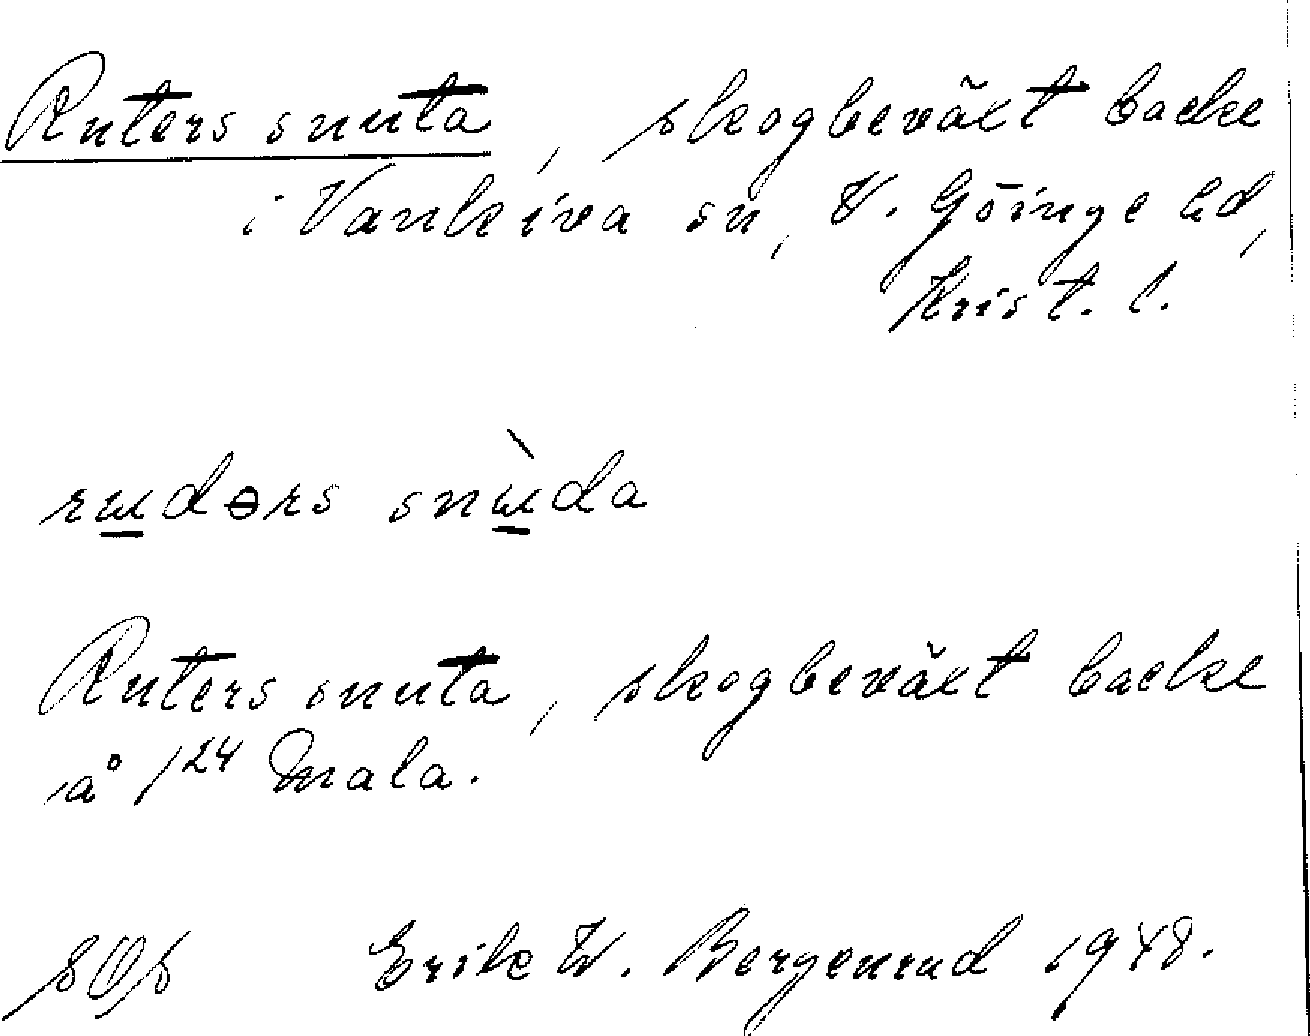 Ruters snuta, skogbeväxt backe
i Vankiva sn, V. Göinge hd,
Krist. l.
rɯdərs snɯ̀da
Ruters snuta, skogbeväxt backe
å 1 24 Mala.
Erik W. Bergenrud 1948.